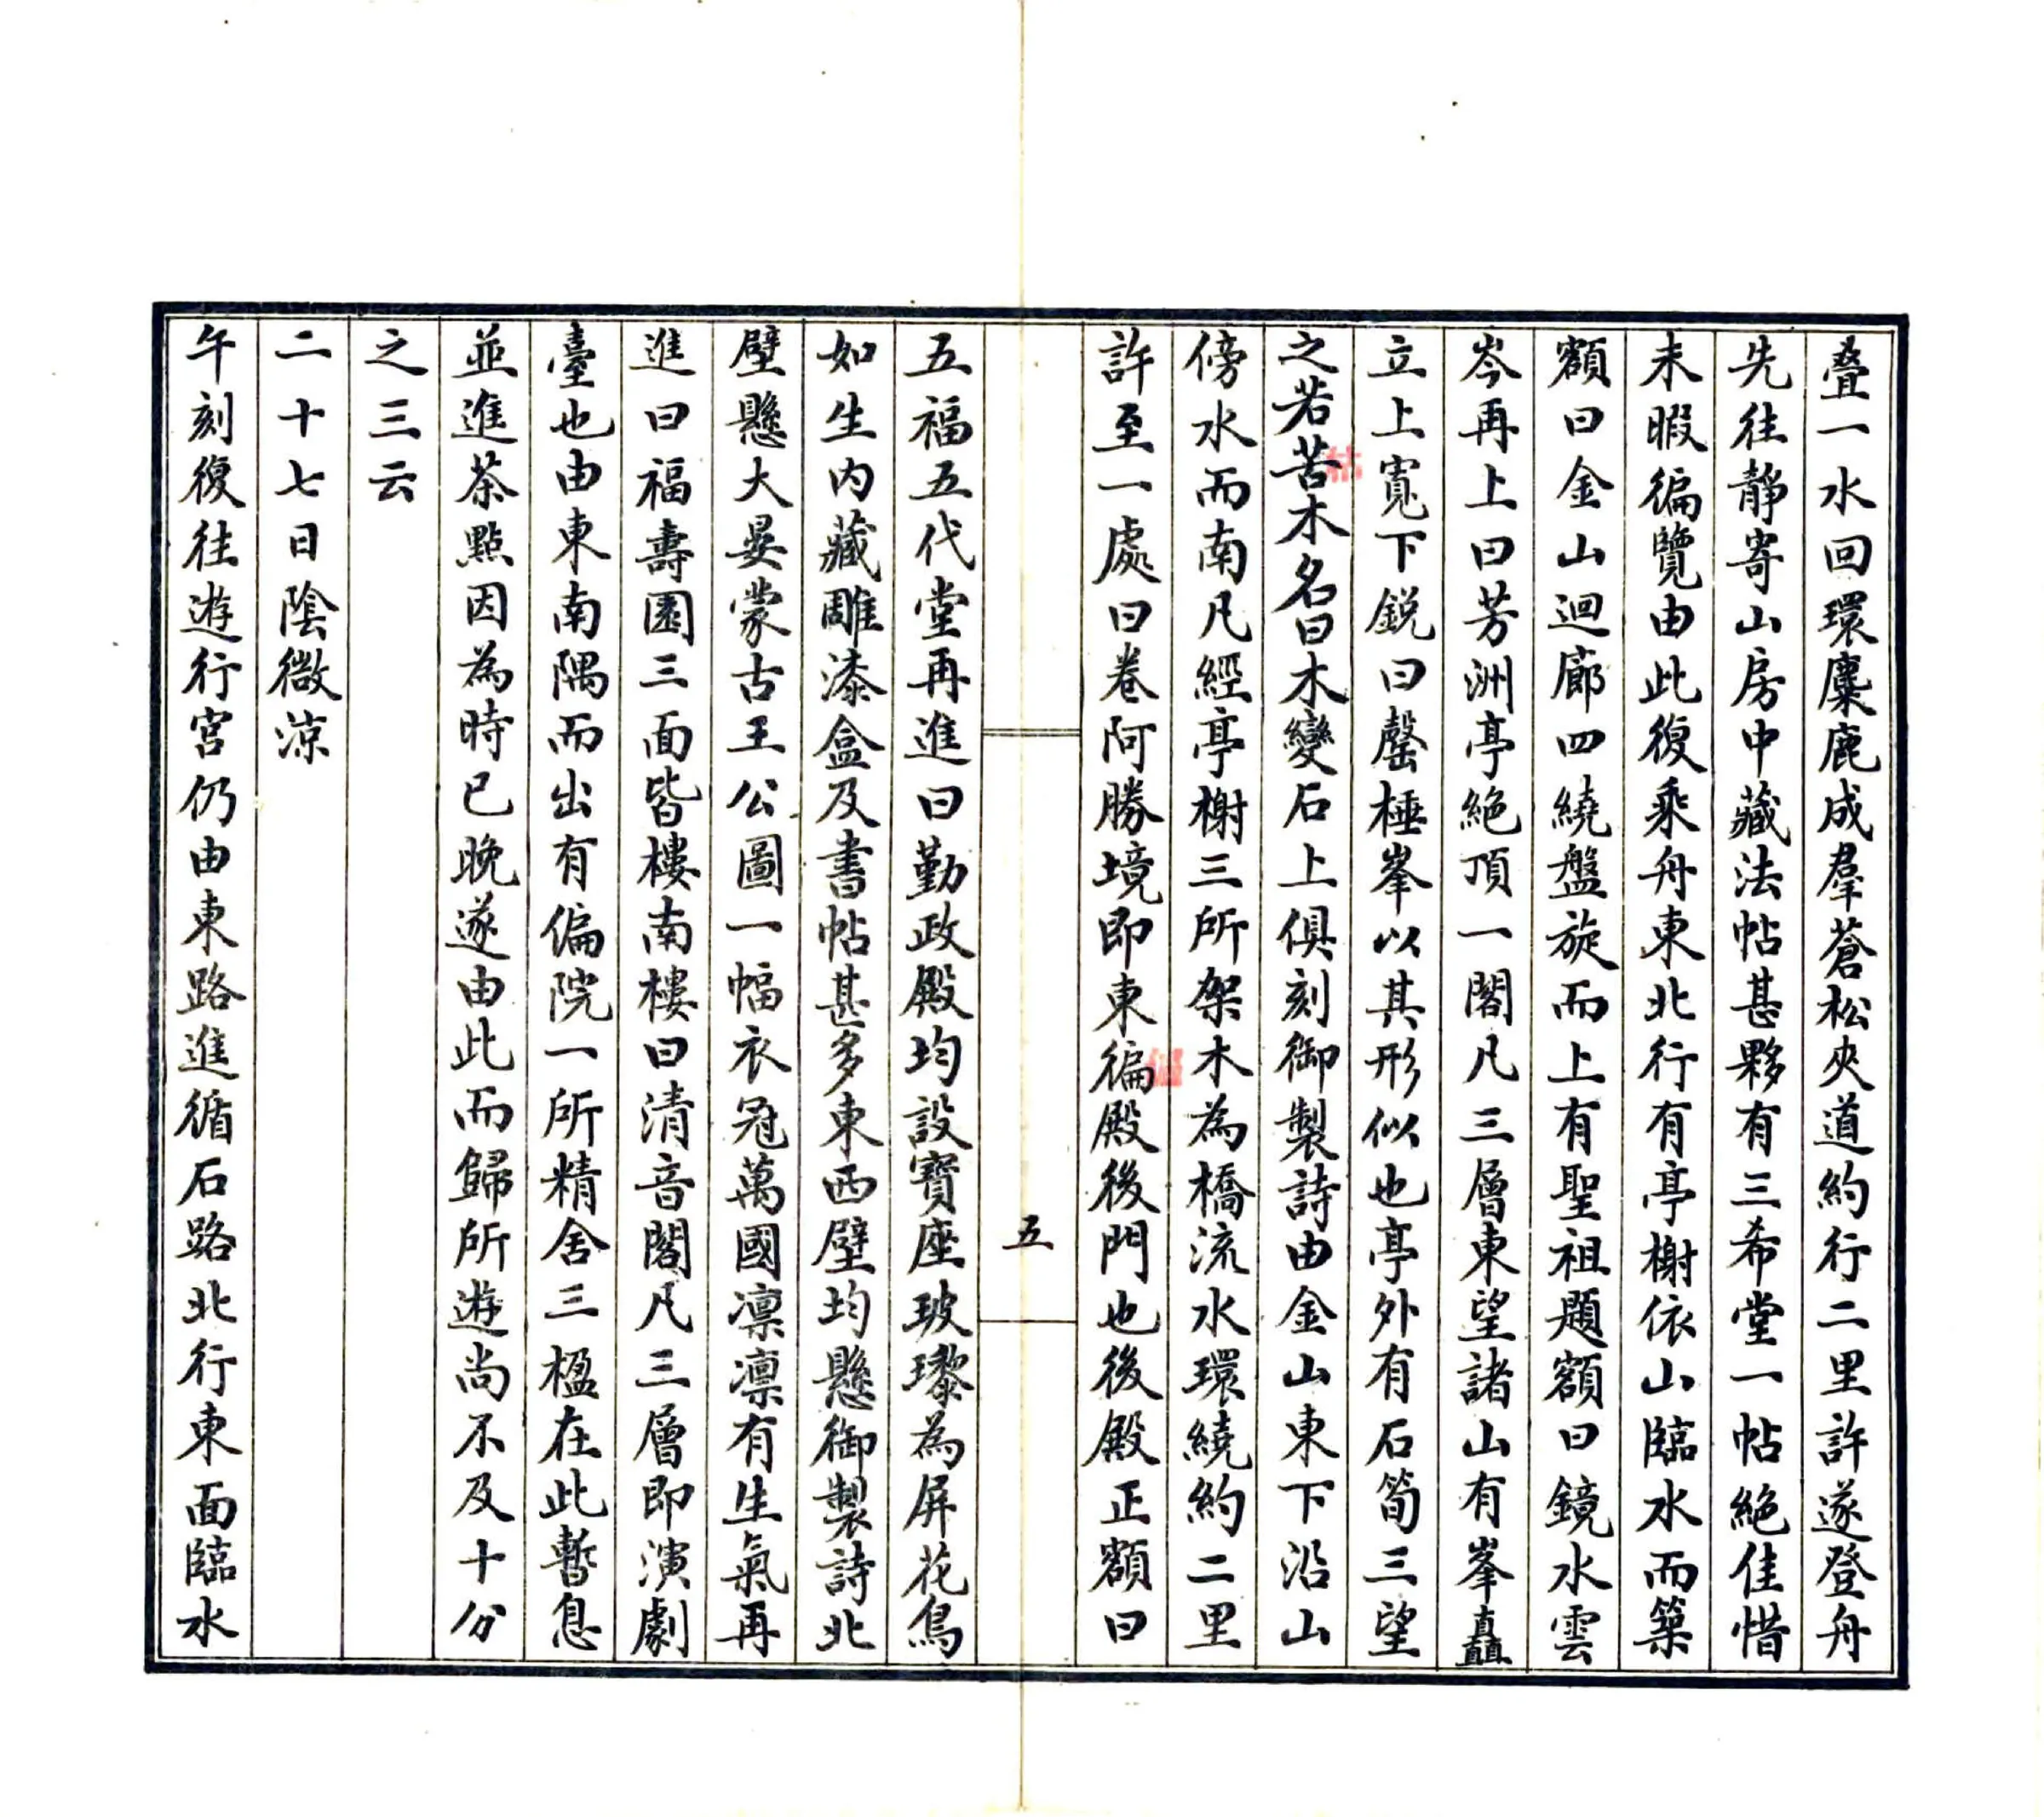 疊一水回環麋鹿成羣蒼松夾道約行二里許遂登舟
先往靜寄山房中藏法帖甚夥有三希堂一帖絕佳惜
未暇徧覽由此復乘舟東北行有亭榭依山臨水而築
額曰金山迴廊四繞盤旋而上有聖祖題額曰鏡水雲
岑再上曰芳洲亭絕頂一閣凡三層東望諸山有峯矗
立上寬下銳曰罄棰峯以其形似也亭外有石筍三望
之若苦木名曰木變石上俱刻御製詩由金山東下沿山
枯
傍水而南凡經亭榭三所架木為橋流水環繞約二里
許至一處曰卷阿勝境即東徧殿後門也後殿正額曰
偏
五
五福五代堂再進曰勤政殿均設寶座玻瓈為屏花鳥
如生內藏雕漆盒及書帖甚多東西壁均懸御製詩北
壁懸大晏蒙古王公圖一幅衣冠萬國凛凛有生氣再
進曰福壽園三面皆樓南樓曰清音閣凡三層即演劇
臺也由東南隅而出有偏院一所精舍三楹在此暫息
並進茶點因為時已晚遂由此而歸所遊尚不及十分
之三云
二十七日陰微涼
午刻復往遊行宮仍由東路進循石路北行東面臨水